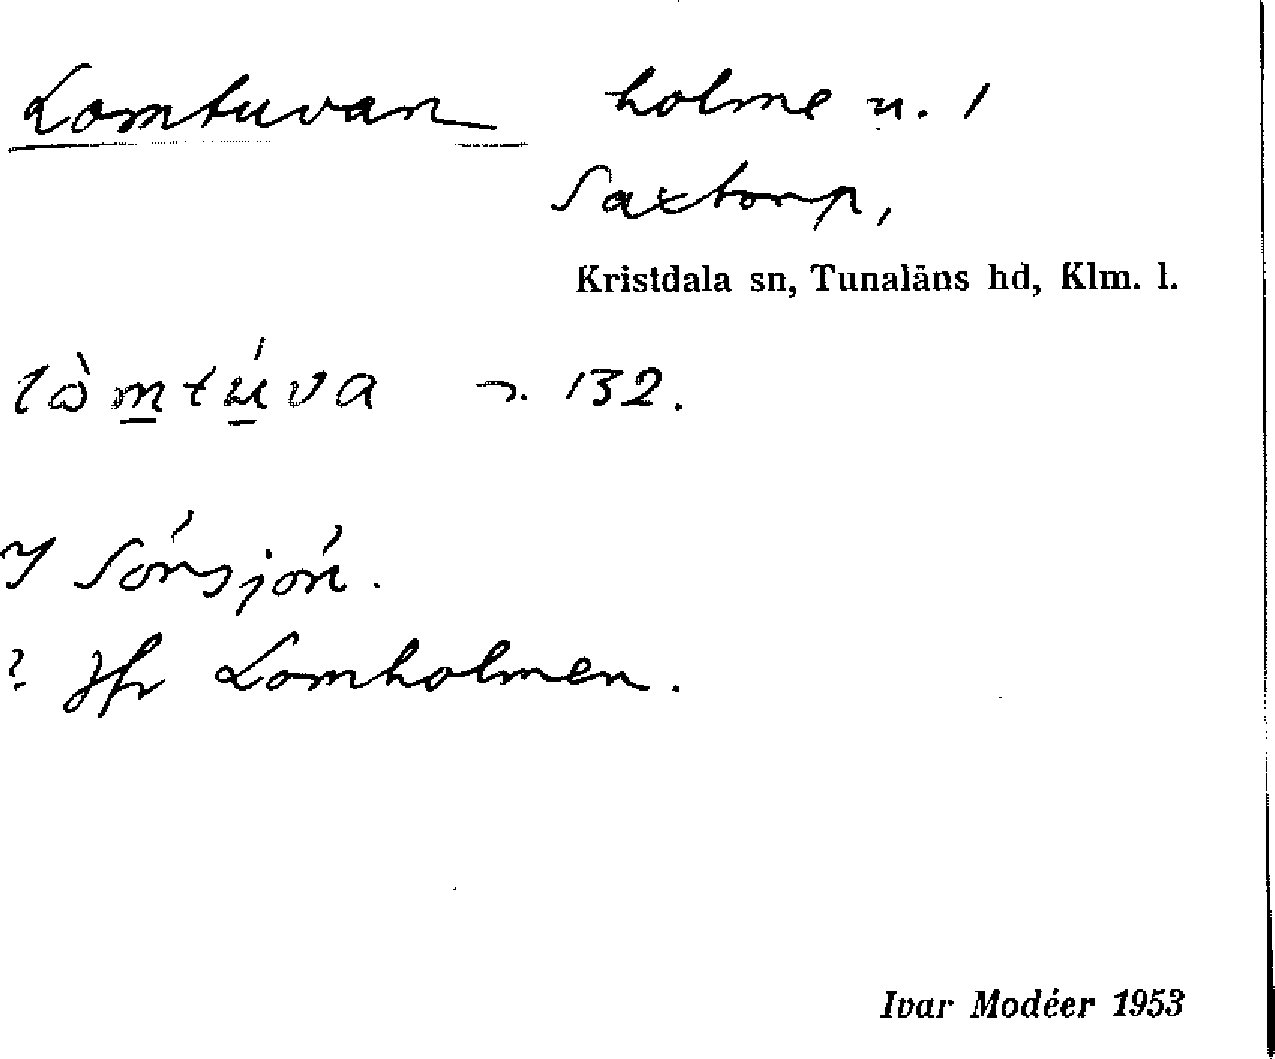 Lomtuvan holme n. 1
Saxtorp,
Kristdala sn, Tunaläns hd, Klm. l.
lòmtúva 132.
I Sörsjön.
? Jfr Lomholmen.
Ivar Modéer 1953